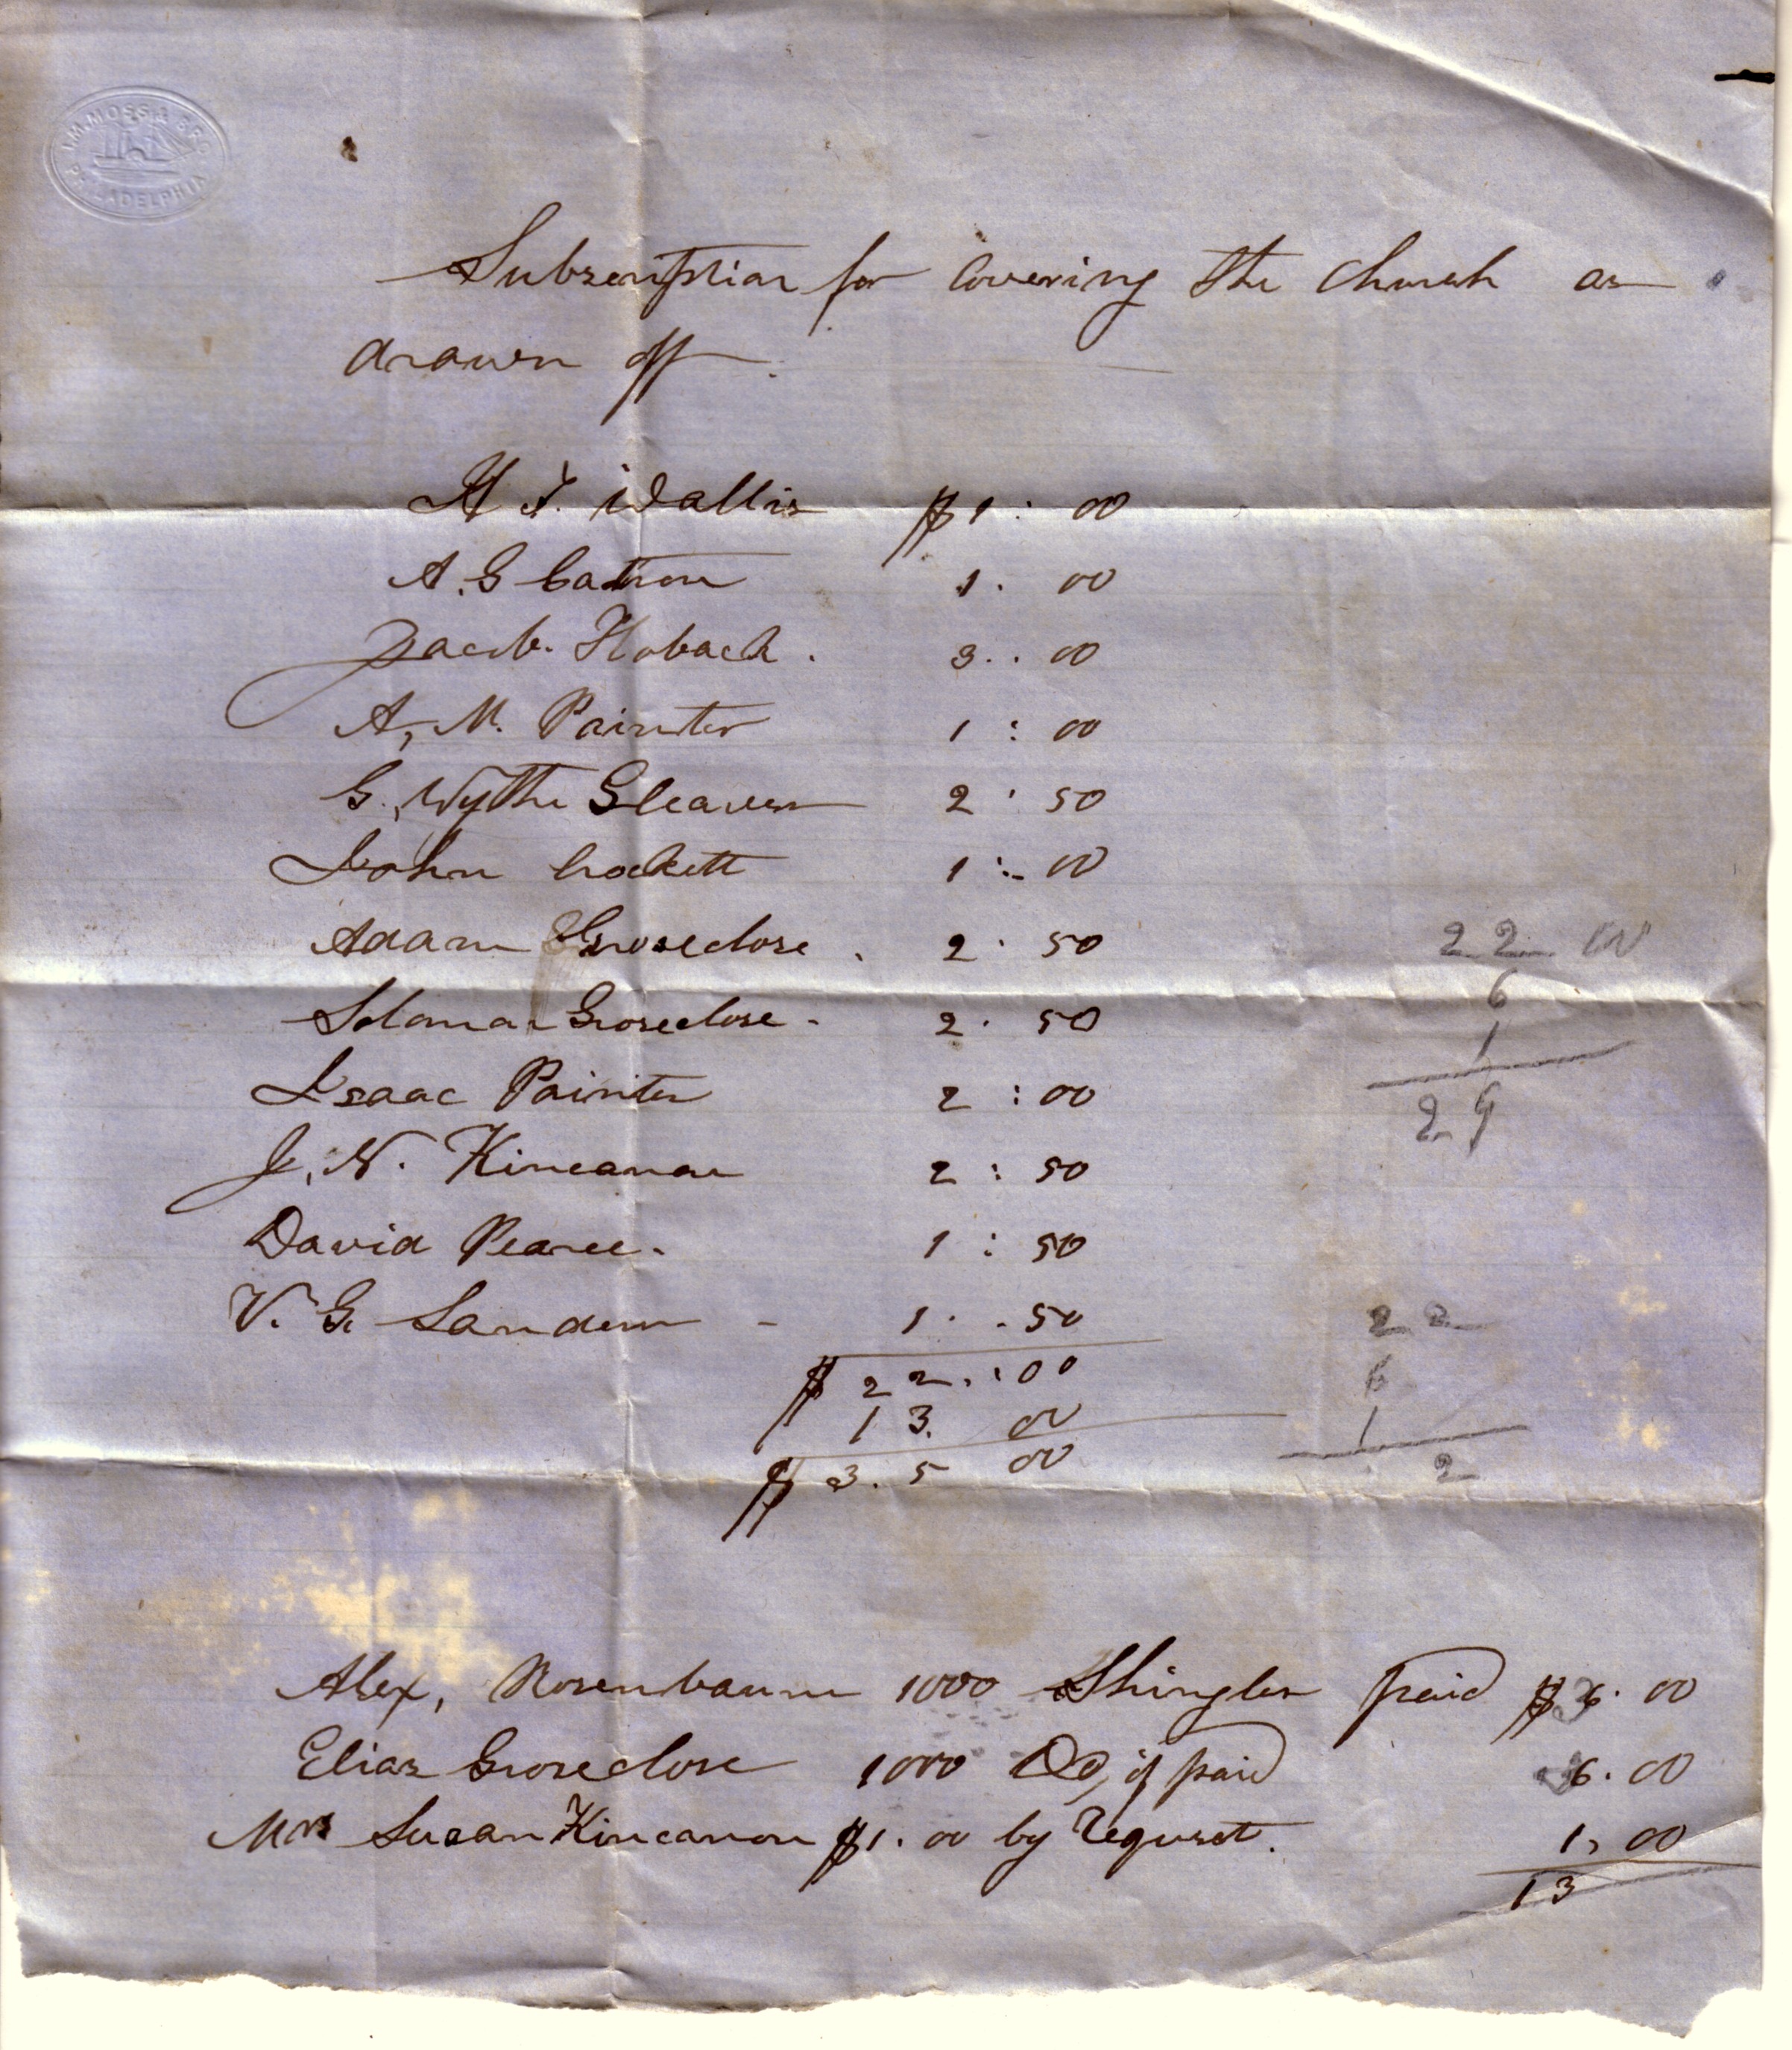 I.M. MOSS & BRO
PHILADELPHIA
Subscription for Covering the Church as
drawn off
H T. Wallis $1: 00
A. G Catron 1. 00
Jacob. Hoback. 3.. 00
A, M. Painter 1: 00
G. Wythe Gleaves 2: 50
John Crockett 1: 00
Adam Groseclose. 2. 50
Soloman Groseclose - 2. 50
Isaac Painter 2: 00
J, N. Kincanon 2: 50
David Pearce. 1: 50
V. G. Sanders - 1. .50
$ 22.:00
13. 00
$ 3.5 00
22 00
6
1
29
22
6
1
2
Alex, Rosenbaum 1000 Shingles paid $6. 00
Elias Groseclose 1000 Do, if paid 6. 00
Mrs Susan Kincanon $1. 00 by request. 1, 00
13